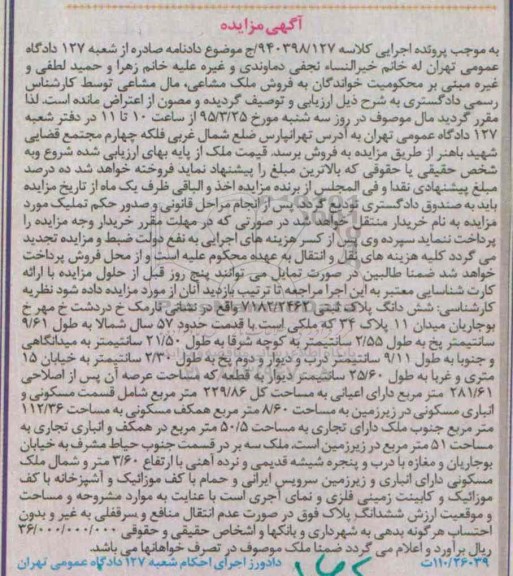 آگهی مزایده
به موجب پرونده اجرایی کلاسه ۹۴۰۳۹۸/۱۲۷/ج موضوع دادنامه صادره از شعبه ۱۲۷ دادگاه
عمومی تهران له خانم خیرالنساء نجفی دماوندی و غیره علیه خانم زهرا و حمید لطفی و
غیره مبنی بر محکومیت خواندگان به فروش ملک مشاعی، مال مشاعی توسط کارشناس
رسمی دادگستری به شرح ذیل ارزیابی و توصیف گردیده و مصون از اعتراض مانده است. لذا
مقرر گردید مال موصوف در روز سه شنبه مورخ ۹۵/۳/۲۵ از ساعت ۱۰ تا ۱۱ در دفتر شعبه
۱۲۷ دادگاه عمومی تهران به آدرس تهرانپارس ضلع شمال غربی فلکه چهارم مجتمع قضایی
شهید باهنر از طریق مزایده به فروش برسد. قیمت ملک از پایه بهای ارزیابی شده شروع وبه
شخص حقیقی یا حقوقی که بالاترین مبلغ را پیشنهاد نماید فروخته خواهد شد ده درصد
مبلغ پیشنهادی نقدا و فی المجلس از برنده مزایده اخذ و الباقی ظرف یک ماه از تاریخ مزایده
باید به صندوق دادگستری تودیع گردد. پس از انجام مراحل قانونی و صدور حکم تملیک مورد
مزایده به نام خریدار منتقل خواهد شد در صورتی که در مهلت مقرر خریدار وجه مزایده را
پرداخت ننماید سپرده وی پس از کسر هزینه های اجرایی به نفع دولت ضبط و مزایده تجدید
می گردد کلیه هزینه های نقل و انتقال به عهده محکوم علیه است و از محل فروش پرداخت
خواهد شد ضمنا طالبین در صورت تمایل می توانند پنج روز قبل از حلول مزایده با ارائه
کارت شناسایی معتبر به این اجرا مراجعه تا ترتیب بازدید آنان از مورد مزایده داده شود نظریه
کارشناسی: شش دانگ پلاک ثبتی ۷۱۸۲/۲۴۶۲ واقع در نشانی نارمک خ دردشت خ مهر خ
بوجاریان میدان ۱۱ پلاک ۳۴ که ملکی است با قدمت حدود ۵۷ سال شمالا به طول ۹/۶۱
سانتیمتر پخ به طول ۲/۵۵ سانتیمتر به کوچه شرقا به طول ۲۱/۵۰ سانتیمتر به میدانگاهی
و جنوبا به طول ۹/۱۱ سانتیمتر درب و دیوار و دوم پخ به طول ۲/۳۰ سانتیمتر به خیابان ۱۵
متری و غربا به طول ۲۵/۶۰ سانتیمتر دیوار به قطعه که مساحت عرصه آن پس از اصلاحی
۲۸۱/۶۱ متر مربع دارای اعیانی به مساحت کل ۲۲۹/۸۶ متر مربع شامل قسمت مسکونی و
انباری مسکونی در زیرزمین به مساحت ۸/۶۰ متر مربع همکف مسکونی به مساحت ۱۱۲/۳۶
متر مربع جنوب ملک دارای تجاری به مساحت ۵۰/۵ متر مربع در همکف و انباری تجاری به
مساحت ۵۱ متر مربع در زیرزمین است. ملک سه بر در قسمت جنوب حیاط مشرف به خیابان
بوجاریان و مغازه با درب و پنجره شیشه قدیمی و نرده آهنی با ارتفاع ۳/۶۰ متر و شمال ملک
مسکونی دارای انباری و زیرزمین سرویس ایرانی و حمام با کف موزائیک و آشپزخانه با کف
موزائیک و کابینت زمینی فلزی و نمای آجری است با عنایت به موارد مشروحه و مساحت
و موقعیت ارزش ششدانگ پلاک فوق در صورت عدم انتقال منافع و سرقفلی به غیر و بدون
احتساب هرگونه بدهی به شهرداری و بانکها و اشخاص حقیقی و حقوقی ۳۶/۰۰۰/۰۰۰/۰۰۰
ریال برآورد و اعلام می گردد ضمنا ملک موصوف در تصرف خواهانها می باشد.
۱۱۰/۲۶۰۳۹ت دادورز اجرای احکام شعبه ۱۲۷ دادگاه عمومی تهران